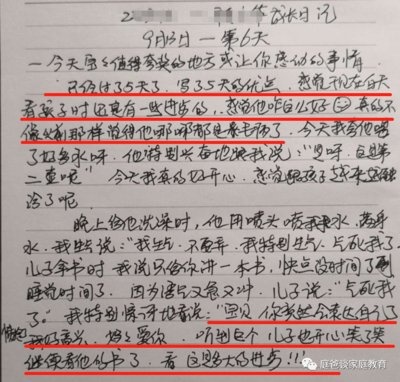 成长日记
9月13日 — 第6天
一、今天宝宝值得夸奖的地方或让你感动的事情
已经过了5天了，写了5天的优点，感觉现在自己
看孩子时还是有一些进步的，感觉他咋自么好 真的不
像以前那样觉得他哪哪都是毛病了。今天我夸他喝
了好多水呀，他特别兴奋地跟我说：“是呀，这是第
二壶呢” 今天我真的好开心，感觉跟孩子越来越
洽了呢
晚上给他洗澡时，他用喷头喷我水，
水，我生气说：“我生气，不要弄，我特别生气，气死我了
儿子拿书时，我说只给你讲一本书，快点没时间了到
睡觉时间了，因为 又急又叫，儿子说：“气死我
了。”我特别惊讶地看说：“宝贝，你竟然会表达自己了
我好高兴，妈妈爱你，听到这个儿子也开心笑了笑
继续看他的书了，看 这是多大的进步！！！”
庭爸谈家庭教育